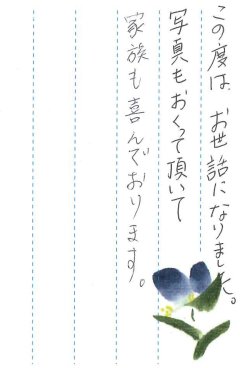 この度は、お世話になりました。
写真もおくって頂いて
家族も喜んでおります。